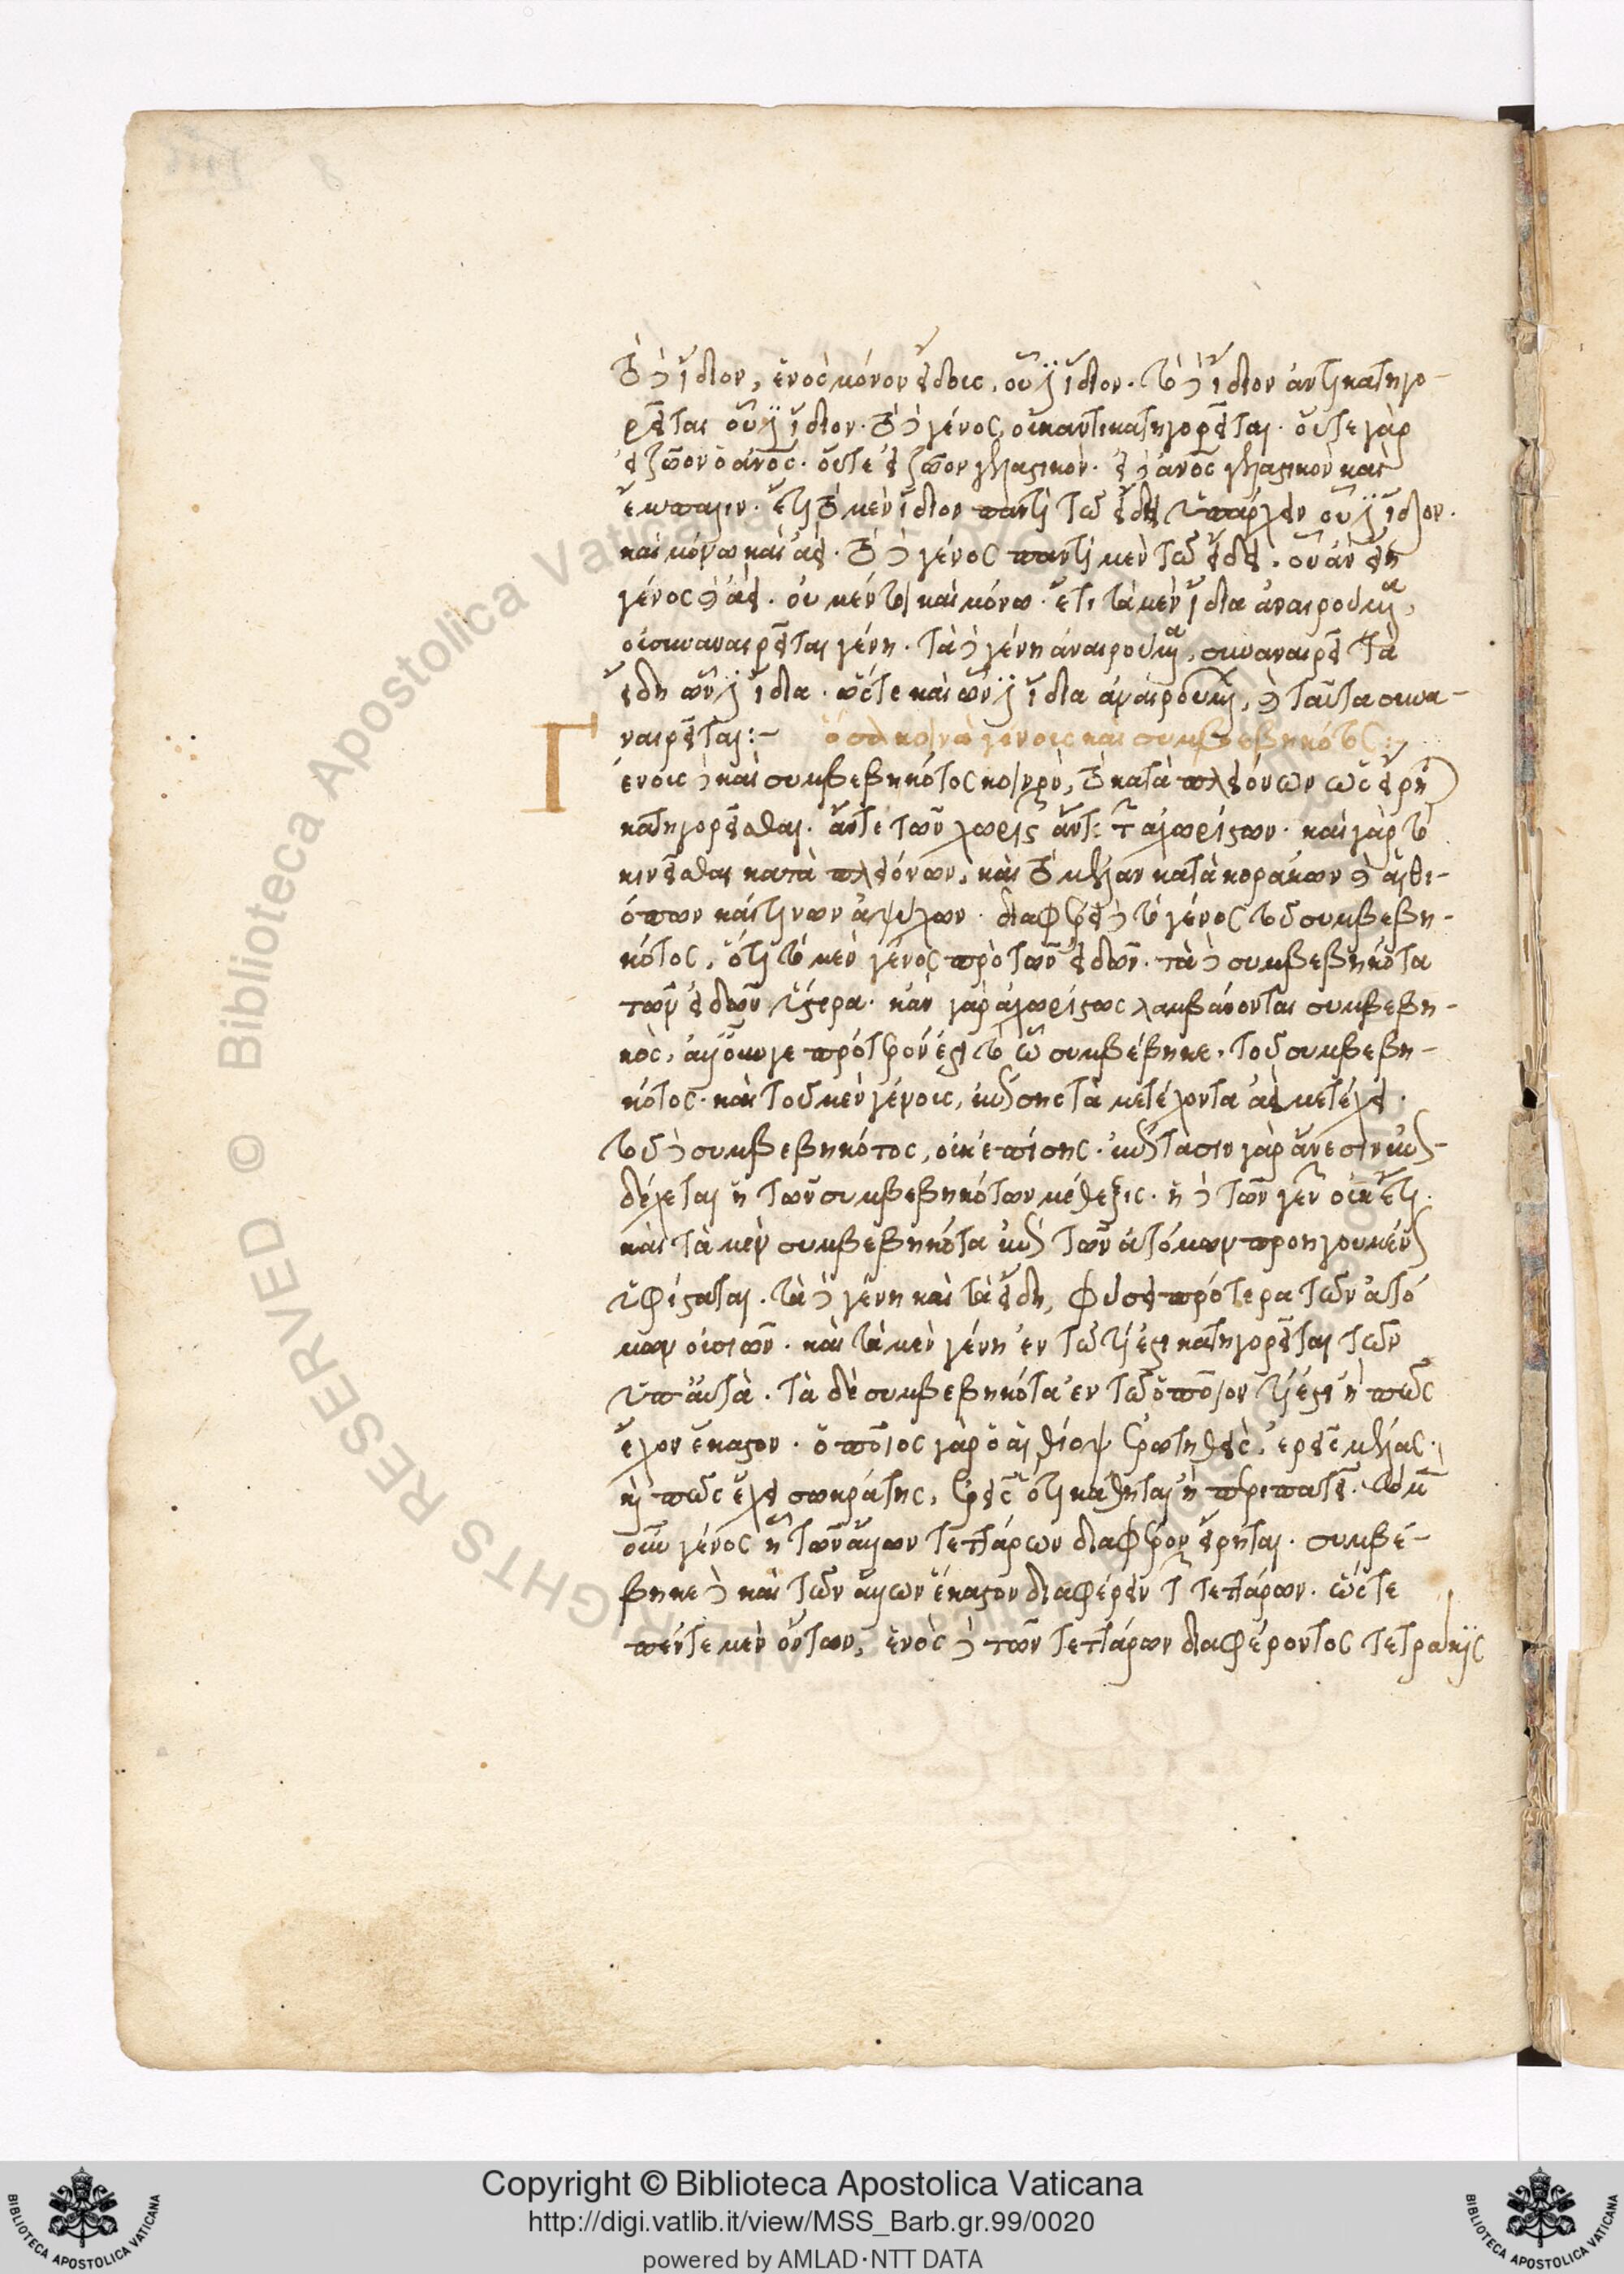 τὸ δὲ ἴδιον, ἑνὸς μόνου εἴδους, οὗ ἐστιν ἴδιον. τὸ δὲ ἴδιον ἀντικατηγο-
ρεῖται οὗ ἐστιν ἴδιον. τὸ δὲ γένος, οὐκ ἀντικατηγορεῖται. οὔτε γὰρ
εἰ ζῶον ὁ ἄνος. οὔτε εἰ ζῶον γελαστικόν. εἰ δὲ ἄνος γελαστικὸν καὶ
ἔμπαλιν. ἔτι τὸ μὲν ἴδιον παντὶ τῶ εἴδει ὑπάρχειν οὗ ἐστιν ἴδιον.
καὶ μόνω καὶ ἀεί. τὸ δὲ γένος παντὶ μὲν τῶ εἴδει. οὗ ἂν εἴη
γένος καὶ ἀεί. οὐ μέντοι καὶ μόνω. ἔτι τὰ μὲν ἴδια ἀναιρούμενα,
οὐ συναναιρεῖται γένη. τὰ δὲ γένη ἀναιρούμενα, συναναιρεῖ τὰ
εἴδη ὧν ἐστιν ἴδια. ὥστε καὶ ὧν ἐστιν ἴδια ἀναιρουμένων, καὶ ταῦτα συνα-
ναιρεῖται:- ὅσα κοινὰ γένους καὶ συμβεβηκότος:
Γένους δὲ καὶ συμβεβηκότος κοινὸν, τὸ κατὰ πλειόνων ὡς εἴρηται
κατηγορεῖσθαι. ἄν τε τῶν χωριστῶν ἄν τε τῶν ἀχωρίστων. καὶ γὰρ τὸ
κινεῖσθαι κατὰ πλειόνων, καὶ τὸ μέλαν κατὰ κοράκων καὶ αἰθι-
όπων καί τινων ἀψύχων. διαφέρει δὲ τὸ γένος τοῦ συμβεβη-
κότος, ὅτι τὸ μὲν γένος πρὸ τῶν εἰδῶν. τὰ δὲ συμβεβηκότα
τῶν εἰδῶν ὕστερα. κἂν γὰρ ἀχώριστως λαμβάνονται συμβεβη-
κὸς, ἀλλ' ὅμως γε πρότερόν ἐστι τὸ ὧ συμβέβηκε, τοῦ συμβεβη-
κότος. καὶ τοῦ μὲν γένους, ἐπίσης τὰ μετέχοντα ἀεὶ μετέχει.
τοῦ δὲ συμβεβηκότος, οὐκ ἐπίσης. ἐπίτασιν γὰρ ἄνεσιν ἐπι-
δέχεται ἡ τῶν συμβεβηκότων μέθεξις. ἡ δὲ τῶν γενῶν οὐκ ἔτι.
καὶ τὰ μὲν συμβεβηκότα ἐπὶ τῶν ἀτόμων προηγουμένως
ὑφίσταται. τὰ δὲ γένη καὶ τὰ εἴδη, φύσει πρότερα τῶν ἀτό
μων οὐσιῶν. καὶ τὰ μὲν γένη ἐν τῶ τί ἐστι κατηγορεῖται τῶν
ὑπ' αὐτὰ. τὰ δὲ συμβεβηκότα ἐν τῶ ὁποῖον τί ἐστι ἢ πῶς
ἔχον ἕκαστον. ὁποῖος γὰρ ὁ αἰθίοψ ἐρωτηθεὶς, ἐρεῖς μέλας.
καὶ πῶς ἔχει σωκράτης, ἐρεῖς ὅτι κάθηται ἢ περιπατεῖ. τὸ μὲν
οὖν γένος ᾗ τῶν ἄλλων τεττάρων διαφέρον εἴρηται. συμβέ-
βηκε δὲ καὶ τῶν ἄλλων ἕκαστον διαφέρειν τῶν τεττάρων. ὥστε
πέντε μὲν ὄντων, ἑνὸς δὲ τῶν τεττάρων διαφέροντος τετράκις
© Biblioteca Apostolica Vaticana
ALL RIGHTS RESERVED
Copyright © Biblioteca Apostolica Vaticana
http://digi.vatlib.it/view/MSS_Barb.gr.99/0020
powered by AMLAD·NTT DATA
BIBLIOTECA APOSTOLICA VATICANA
BIBLIOTECA APOSTOLICA VATICANA